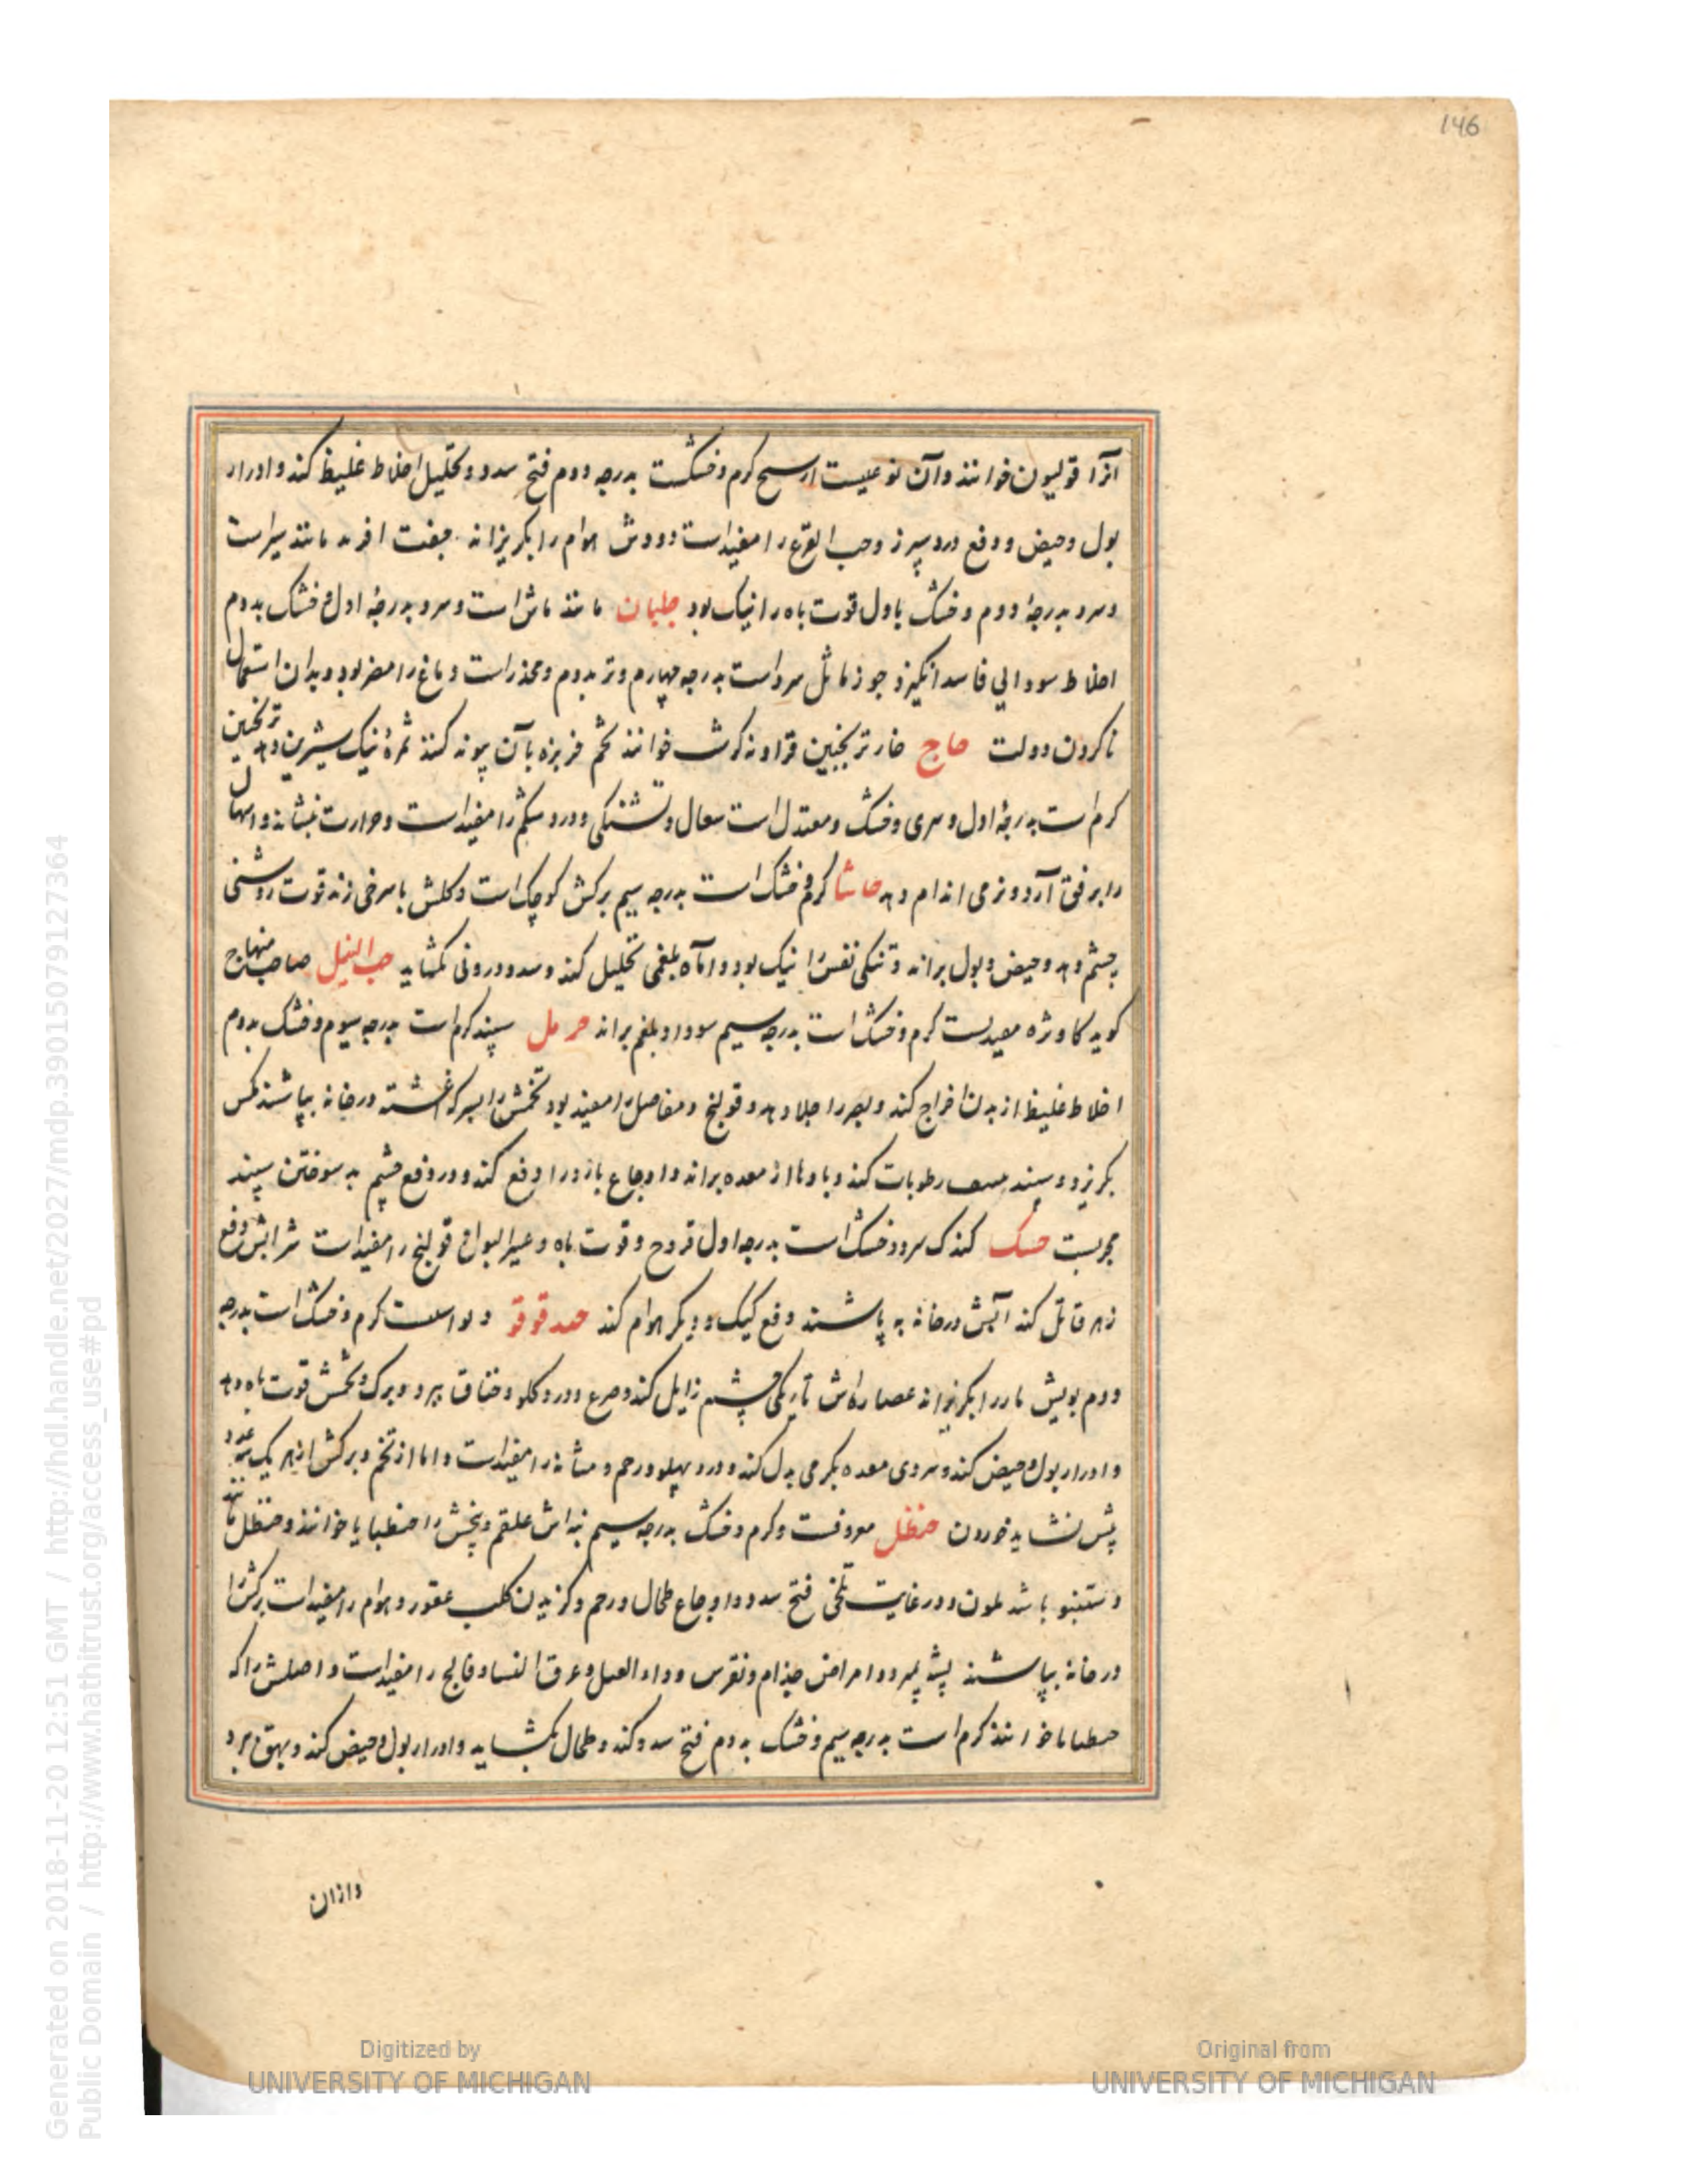 146
آنرا قولیون خوانند وآن نوعیست از سیح کرم وخشکست بدرجه دوم فتح سدد وتحلیل اخلاط غلیظ کند وادرار
بول وحیض ودفع درد سپرز وحب القرع را مفیداست ودودش هوام را بکریزاند جفت مانند سیراست
وسرد بدرجهٔ دوم وخشک باول قوت باه را نیک بود جلبان مانند ماش است وسرد بدرجهٔ اول وخشک بدوم
اخلاط سودایی فاسد انکیزد جوز ماثل سرداست بدرجه چهارم وتر بدوم ومخدراست دماغ را مضر بود وبدان استعمال
ناکردن دولت حاج خار ترنجبین خوانند تخم خربزه بآن پیوند کنند ثمرهٔ نیک شیرین دهد ترنجبین
کرم است بدرجهٔ اول وسری وخشک ومعتدل است سعال وتشنکی ودرد شکم را مفیداست وحرارت بنشاند واسهال
را برفق آرد ونرمی اندام دهد حاشا کرم وخشک است بدرجه سیم برکش کوچک است وکلش باسرخی زند قوت روشنی
چشم دهد وحیض وبول براند وتنکی نفس را نیک بود واماه بلغمی تحلیل کند وسدد درونی کشاید حب النیل صاحب منهاج
کوید کاوژه کرم وخشک است بدرجه سیم سودا وبلغم براند حرمل سپند کرم است بدرجه سیوم وخشک بدوم
اخلاط غلیظ از بدن اخراج کند وبصر را جلا دهد وقولنج ومفاصل را مفید بود تخمش را بسرکه اغشته درخانه بپاشند مکس
بکریزد وسپند رطوبات کند وبادها از معده براند واوجاع بارد را دفع کند ودر دفع چشم بد سوختن سپند
مجربست حسک کندک سرد وخشک است بدرجه اول قروح وقوت باه وعسر البول وقولنج را مفیداست شرابش دفع
زهر قاتل کند آبش درخانه به پاشند دفع کیک ودیکر هوام کند حندقوقو کرم وخشک است بدرجه
دوم بویش مار را بکریزاند عصاره‌اش تاریکی چشم زایل کند وصرع ودرد کلو وخناق ببرد وبرک وتخمش قوت باه دهد
وادرار بول وحیض کند وسردی معده بکرمی بدل کند ودرد پهلو ورحم ومثانه را مفیداست واما از تخم وبرکش از هر یک عدد
پیش نشاید خوردن حنظل معروفست وکرم وخشک بدرجه سیم علقم وبیخش را حنطیانا خوانند وحنظل مانند
دستنبو باشد بلون ودر غایت تلخی فتح سدد واوجاع طحال ورحم وکزیدن کلب عقور وهوام را مفیداست برکش را
درخانه بپاشند پشه بمیرد وامراض جذام ونقرس وداء الفیل وعرق النسا وفالج را مفیداست واصلش را که
حنطیانا خوانند کرم است بدرجه سیم وخشک بدوم فتح سدد کند وطحال بکشاید وادرار بول وحیض کند وبهق ببرد
وازان
Digitized by
UNIVERSITY OF MICHIGAN
Original from
UNIVERSITY OF MICHIGAN
Generated on 2018-11-20 12:51 GMT / http://hdl.handle.net/2027/mdp.39015079127364
Public Domain / http://www.hathitrust.org/access_use#pd